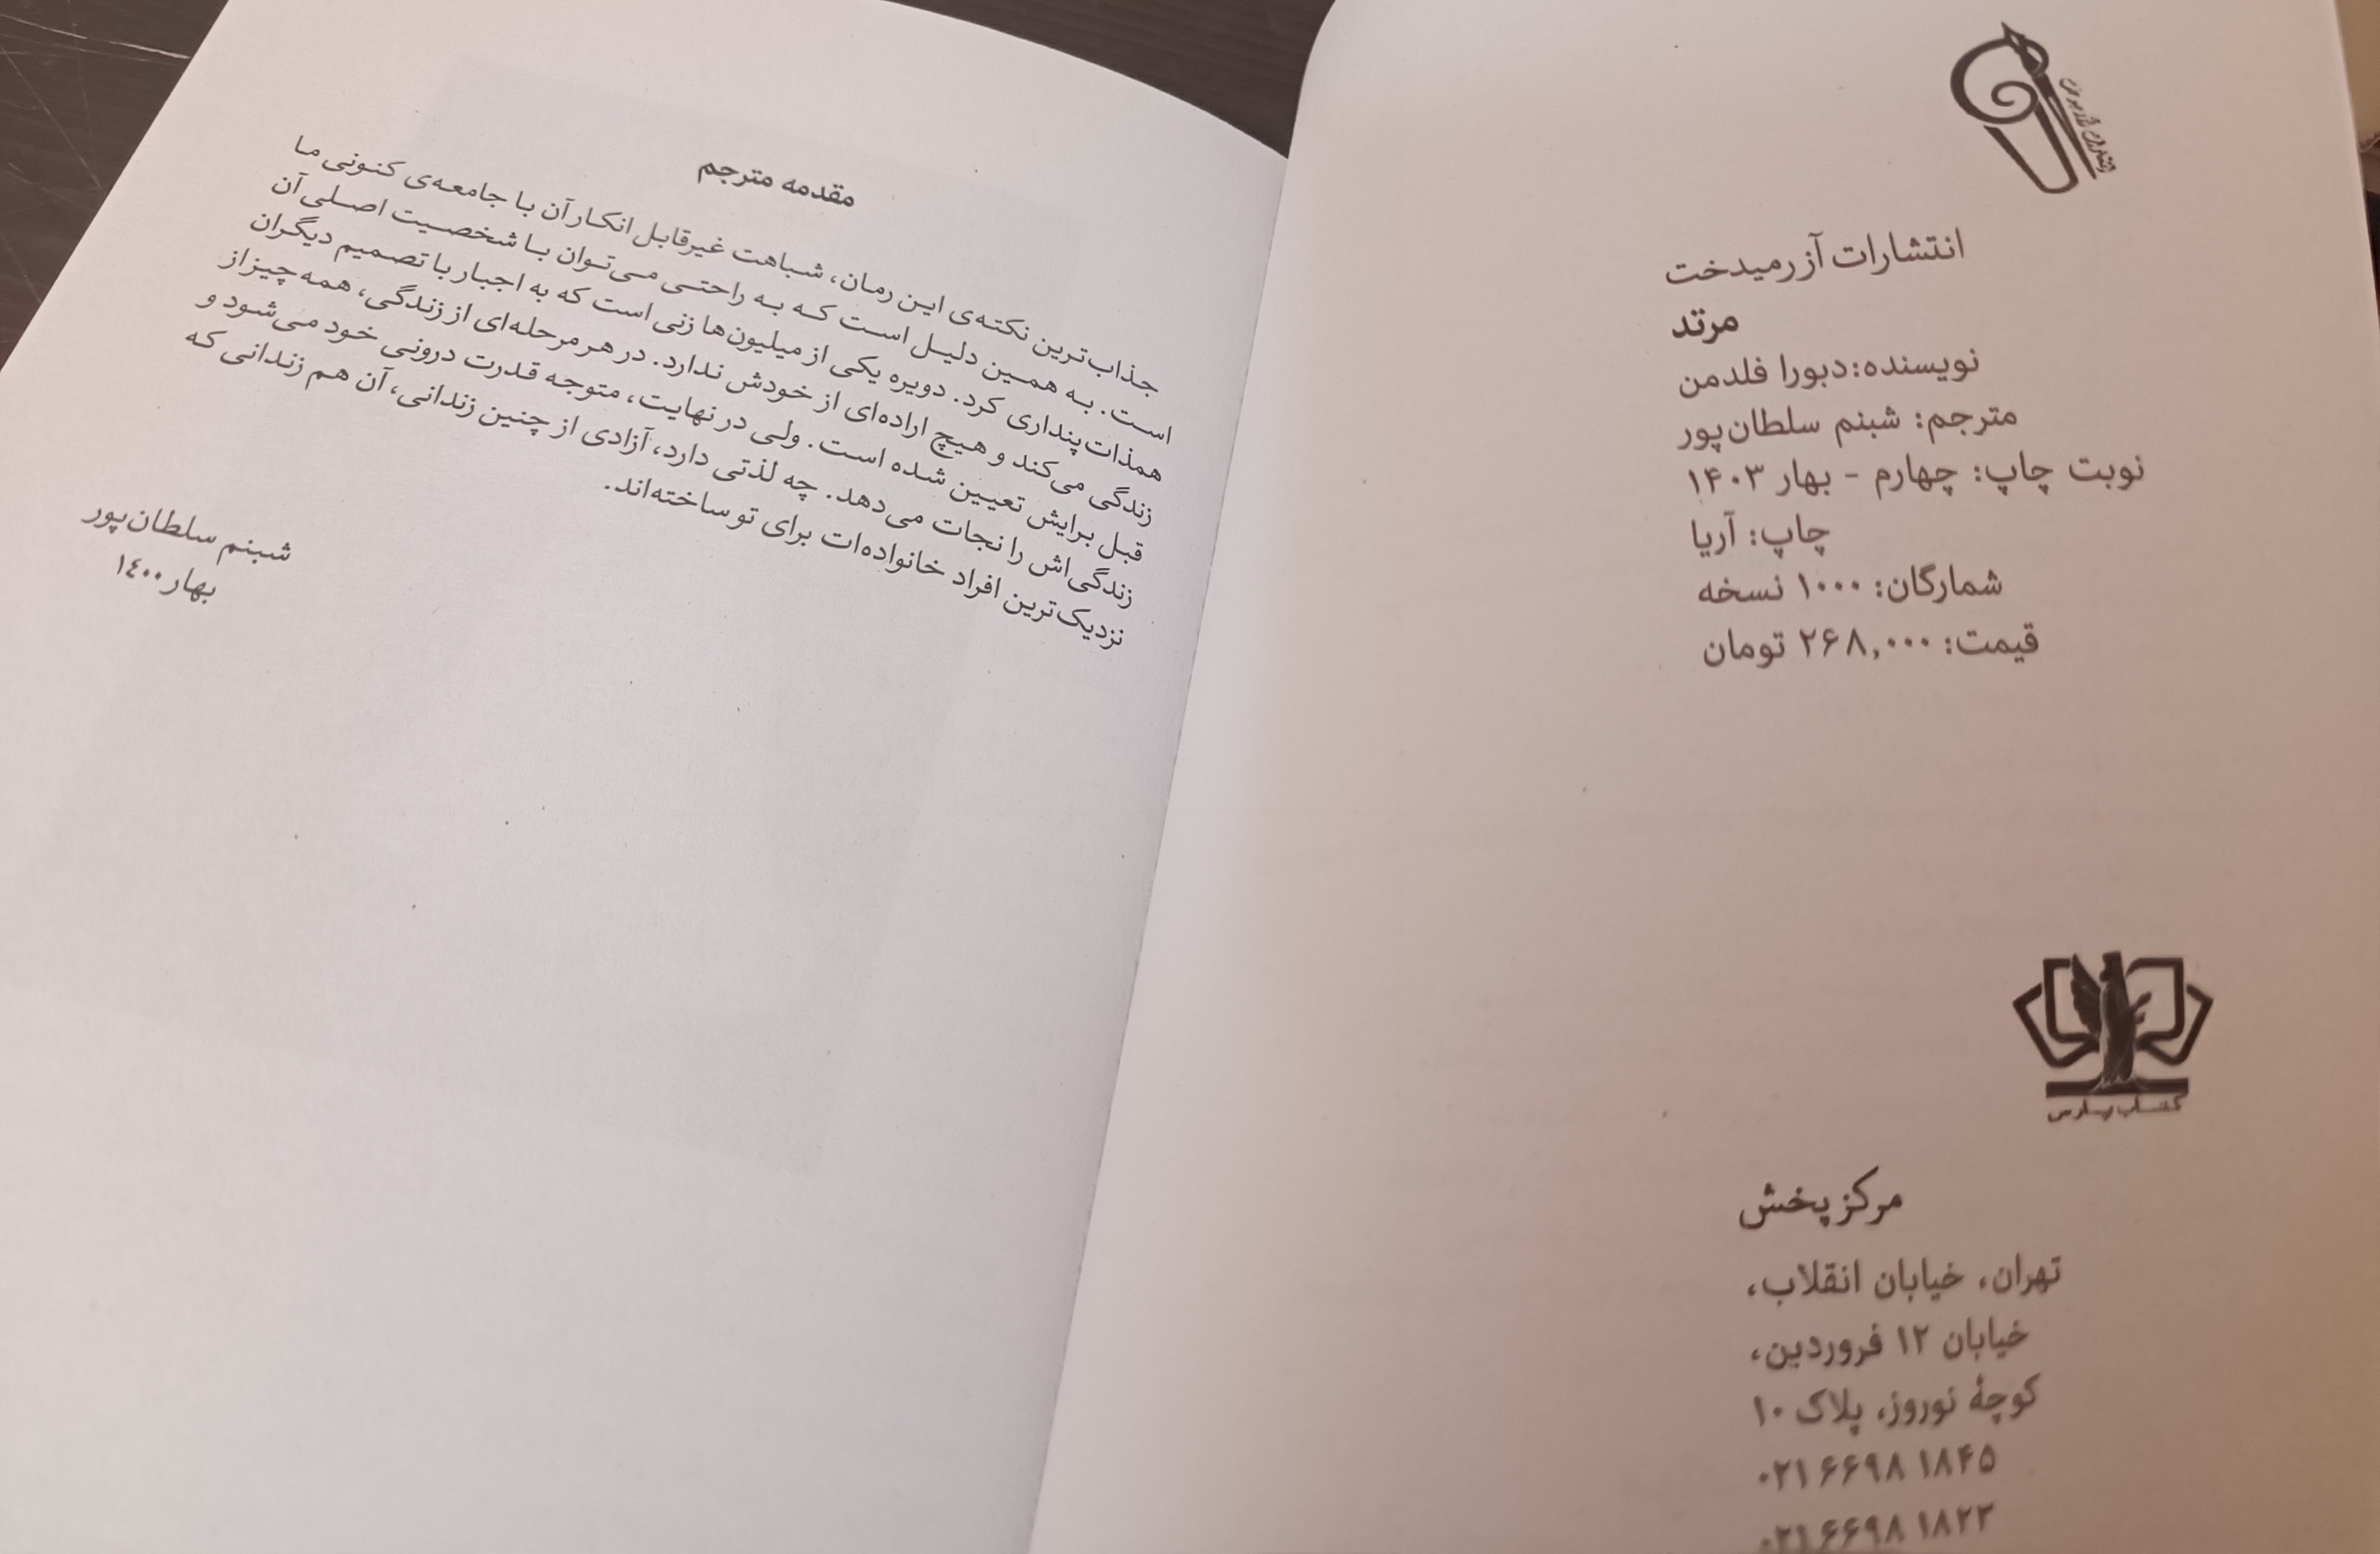 انتشارات آزرمیدخت
مرتد
نویسنده:دبورا فلدمن
مترجم: شبنم سلطان‌پور
نوبت چاپ: چهارم - بهار ۱۴۰۳
چاپ: آریا
شمارگان: ۱۰۰۰ نسخه
قیمت: ۲۶۸,۰۰۰ تومان
کتاب پارس
مرکز پخش
تهران، خیابان انقلاب،
خیابان ۱۲ فروردین،
کوچهٔ نوروز، پلاک ۱۰
۰۲۱ ۶۶۹۸ ۱۸۴۵
۰۲۱ ۶۶۹۸ ۱۸۲۳
مقدمه مترجم
جذاب‌ترین نکته‌ی این رمان، شباهت غیرقابل انکار آن با جامعه‌ی کنونی ما
است. به همین دلیل است که به راحتی می‌توان با شخصیت اصلی آن
همذات‌پنداری کرد. دویره یکی از میلیون‌ها زنی است که به اجبار با تصمیم دیگران
زندگی می‌کند و هیچ اراده‌ای از خودش ندارد. در هر مرحله‌ای از زندگی، همه چیز از
قبل برایش تعیین شده است. ولی در نهایت، متوجه قدرت درونی خود می‌شود و
زندگی‌اش را نجات می‌دهد. چه لذتی دارد، آزادی از چنین زندانی، آن هم زندانی که
نزدیک‌ترین افراد خانواده‌ات برای تو ساخته‌اند.
شبنم سلطان‌پور
بهار ۱٤۰۰